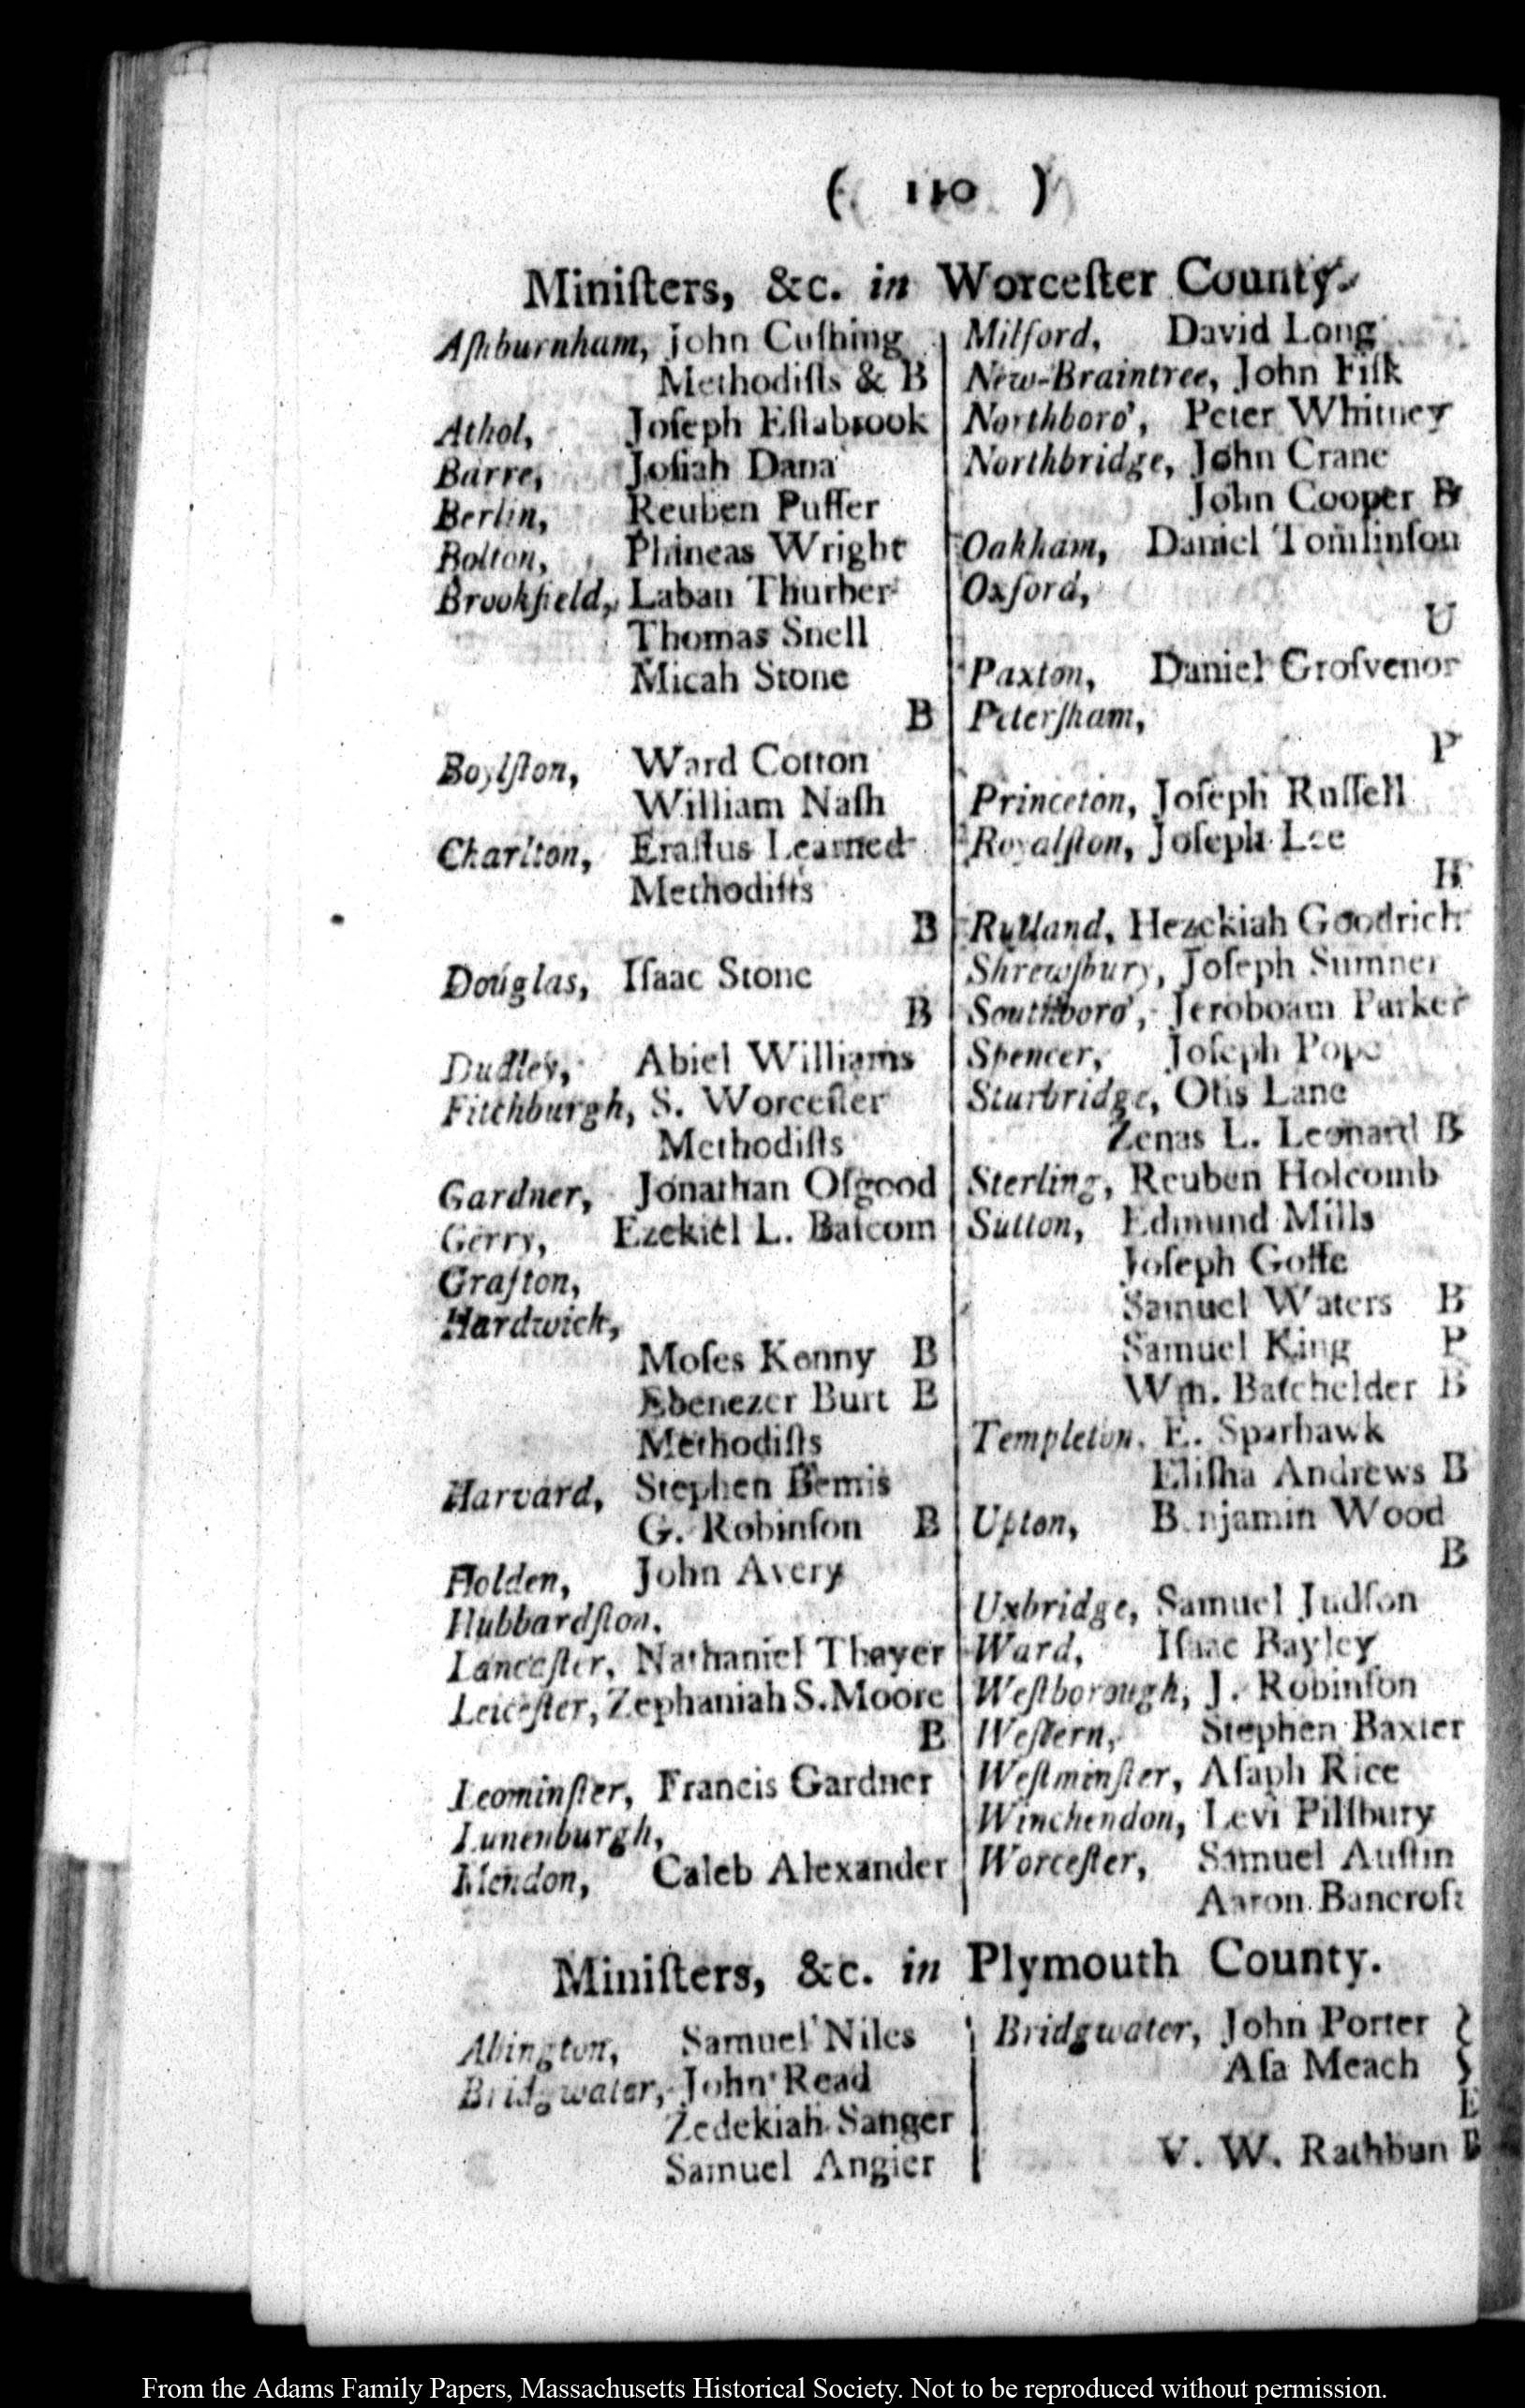 ( 110 )
Miniſters, &c. in Worceſter County.
Aſhburnham, John Cuſhing
Methodiſts & B
Athol, Joſeph Eſtabrook
Barre, Joſiah Dana
Berlin, Reuben Puffer
Bolton, Phineas Wright
Brookfield, Laban Thurber
Thomas Snell
Micah Stone
B
Boylſton, Ward Cotton
William Naſh
Charlton, Eraſtus Learned
Methodiſts
B
Douglas, Iſaac Stone
B
Dudley, Abiel Williams
Fitchburgh, S. Worceſter
Methodiſts
Gardner, Jonathan Oſgood
Gerry, Ezekiel L. Baſcom
Grafton,
Hardwick,
Moſes Kenny B
Ebenezer Burt B
Methodiſts
Harvard, Stephen Bemis
G. Robinſon B
Holden, John Avery
Hubbardſton,
Lancaſter, Nathaniel Thayer
Leiceſter, Zephaniah S. Moore
B
Leominſter, Francis Gardner
Lunenburgh,
Mendon, Caleb Alexander
Milford, David Long
New-Braintree, John Fiſk
Northboro', Peter Whitney
Northbridge, John Crane
John Cooper B
Oakham, Daniel Tomlinſon
Oxford,
U
Paxton, Daniel Groſvenor
Peterſham,
P
Princeton, Joſeph Ruſſell
Royalſton, Joſeph Lee
B
Rutland, Hezekiah Goodrich
Shrewſbury, Joſeph Sumner
Southboro', Jeroboam Parker
Spencer, Joſeph Pope
Sturbridge, Otis Lane
Zenas L. Leonard B
Sterling, Reuben Holcomb
Sutton, Edmund Mills
Joſeph Goffe
Samuel Waters B
Samuel King P
Wm. Batchelder B
Templeton, E. Sparhawk
Eliſha Andrews B
Upton, Benjamin Wood
B
Uxbridge, Samuel Judſon
Ward, Iſaac Bayley
Weſtborough, J. Robinſon
Weſtern, Stephen Baxter
Weſtminſter, Aſaph Rice
Winchendon, Levi Pillſbury
Worceſter, Samuel Auſtin
Aaron Bancroft
Miniſters, &c. in Plymouth County.
Abington, Samuel Niles
Bridgwater, John Read
Zedekiah Sanger
Samuel Angier
Bridgwater, John Porter }
Aſa Meach }
E
V. W. Rathbun B
From the Adams Family Papers, Massachusetts Historical Society. Not to be reproduced without permission.